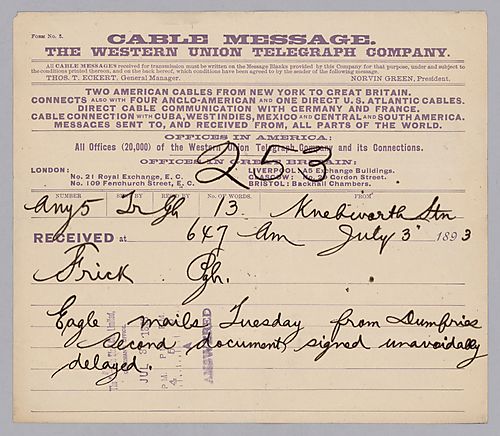 FORM No. 5.
CABLE MESSAGE.
THE WESTERN UNION TELEGRAPH COMPANY.
All CABLE MESSAGES received for transmission must be written on the Message Blanks provided by this Company for that purpose, under and subject to
the conditions printed thereon, and on the back hereof, which conditions have been agreed to by the sender of the following message.
THOS. T. ECKERT, General Manager. NORVIN GREEN, President.
TWO AMERICAN CABLES FROM NEW YORK TO GREAT BRITAIN.
CONNECTS ALSO WITH FOUR ANGLO-AMERICAN AND ONE DIRECT U.S. ATLANTIC CABLES.
DIRECT CABLE COMMUNICATION WITH GERMANY AND FRANCE.
CABLE CONNECTION WITH CUBA, WEST INDIES, MEXICO AND CENTRAL AND SOUTH AMERICA.
MESSAGES SENT TO, AND RECEIVED FROM, ALL PARTS OF THE WORLD.
OFFICES IN AMERICA:
All Offices (20,000) of the Western Union Telegraph Company and its Connections.
253
OFFICES IN GREAT BRITAIN:
LONDON: LIVERPOOL: A5 Exchange Buildings.
No. 21 Royal Exchange, E. C. GLASGOW: No. 29 Gordon Street.
No. 109 Fenchurch Street, E. C. BRISTOL: Backhall Chambers.
NUMBER SENT BY REC'D BY No. OF WORDS. FROM
Any 5 gh 13 Knebworth Stn
RECEIVED at 647 am July 3 1893
Frick Pgh.
Eagle mails Tuesday from Dumfries
second document signed unavoidably
delayed.
ANSWERED